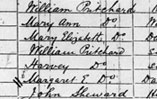 William Pritchard
Mary Ann Do
Mary Elizabth Do
William Pritchard
Harvey Do
Margaret E Do
John Steward